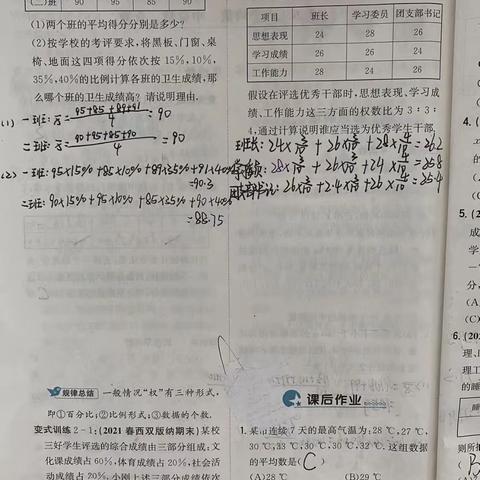 (二)班 90 95 85 90
(1)两个班的平均得分分别是多少?
(2)按学校的考评要求,将黑板、门窗、桌
椅、地面这四项得分依次按 15%,10%,
35%,40%的比例计算各班的卫生成绩,那
么哪个班的卫生成绩高?请说明理由.
(1) 一班: x̄ = (95+85+89+91)/4 = 90
二班: x̄ = (90+95+85+90)/4 = 90
(2) 一班: 95×15% + 85×10% + 89×35% + 91×40%
=90.3
二班: 90×15% + 95×10% + 85×35% + 90×40%
=88.75
规律总结 一般情况“权”有三种形式,
即①百分比;②比例形式;③数据的个数.
变式训练 2-1:(2021 春西双版纳期末)某校
三好学生评选的综合成绩由三部分组成:文
化课成绩占 60%,体育成绩占 20%,社会活
动成绩占 20%,小刚上述三部分成绩依次
项目 班长 学习委员 团支部书记
思想表现 24 28 26
学习成绩 26 26 24
工作能力 28 24 26
假设在评选优秀干部时,思想表现、学习成
绩、工作能力这三方面的权数比为 3∶3∶
4,通过计算说明谁应当选为优秀学生干部.
班长: 24×3/10 + 26×3/10 + 28×4/10 = 26.2
28×3/10 + 26×3/10 + 24×4/10 = 25.8
团支部书记: 26×3/10 + 24×3/10 + 26×4/10 = 25.4
课后作业
1. 某市连续 7 天的最高气温为:28 ℃,27 ℃,
30 ℃,33 ℃,30 ℃,30 ℃,32 ℃.这组数据
的平均数是( C )
(A)28 ℃ (B)29 ℃
4.
5. (20
成
(A
(C)
6. (202
理、
理工
的睡
则所